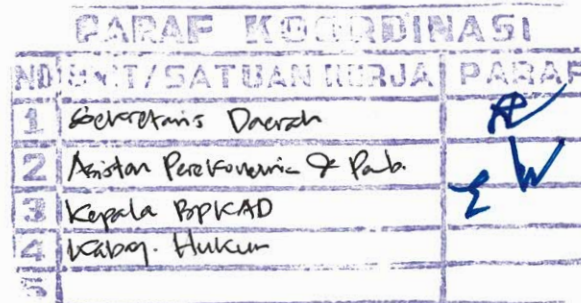 PARAF KOORDINASI
NO UNIT/SATUAN KERJA PARAF
1 Sekretaris Daerah
2 Asisten Perekonomian & Pemb.
3 Kepala BPKAD
4 Kabag. Hukum
5